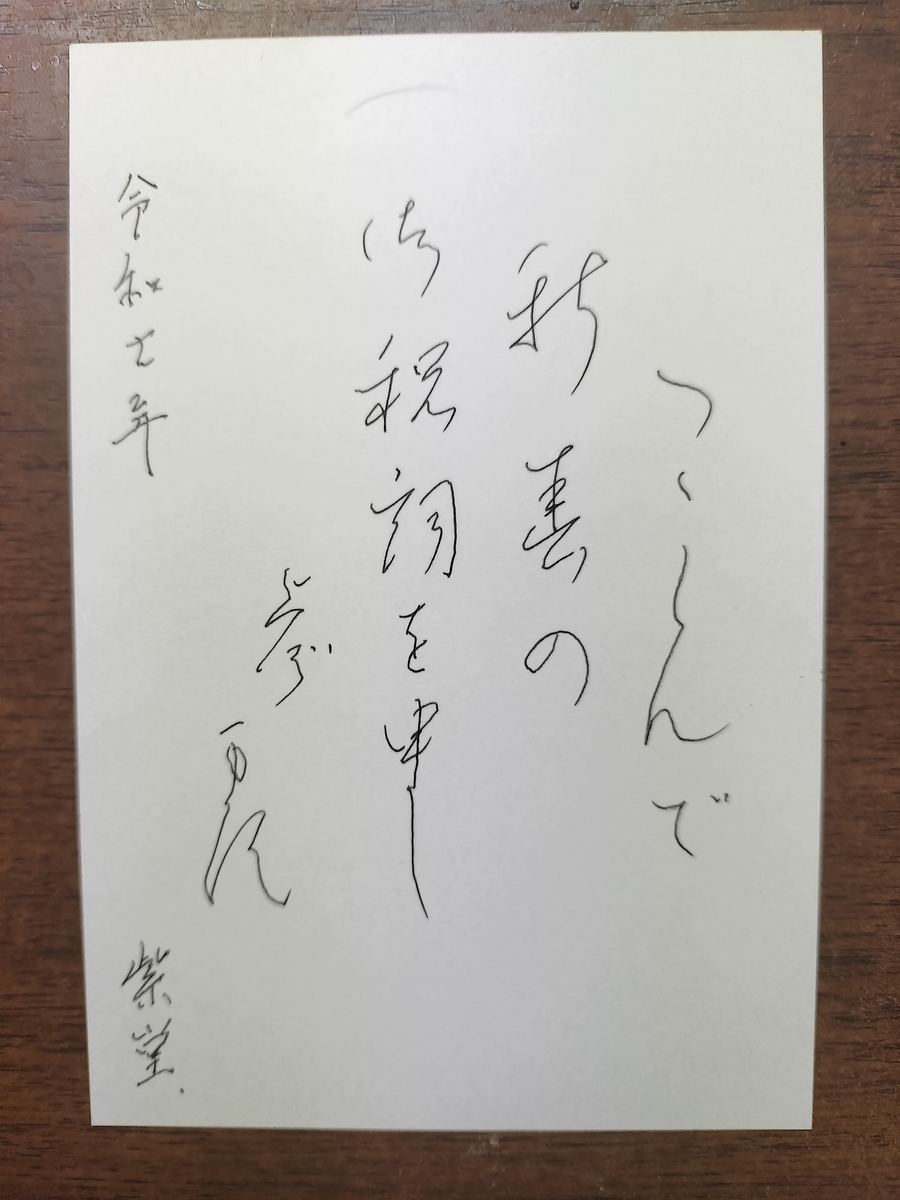 つゝしんで
新春の
御祝詞を申し
上げ
ます
令和七年
紫堂